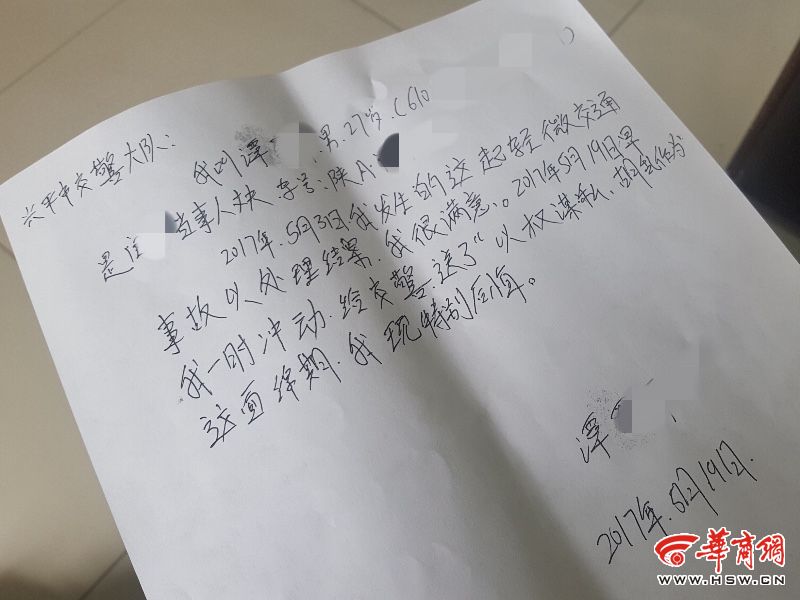 兴平市交警大队:
我叫谭 男.27岁.(610
是 当事人 车号:陕A·
2017年.5月3日我发生的这起轻微交通
事故以处理结果.我很满意。2017年5月19日早
我一时冲动.给交警送了"以权谋私.胡乱作为
这面绵期.我现特别后悔。
谭
2017年.5月19日.
華商網
WWW.HSW.CN